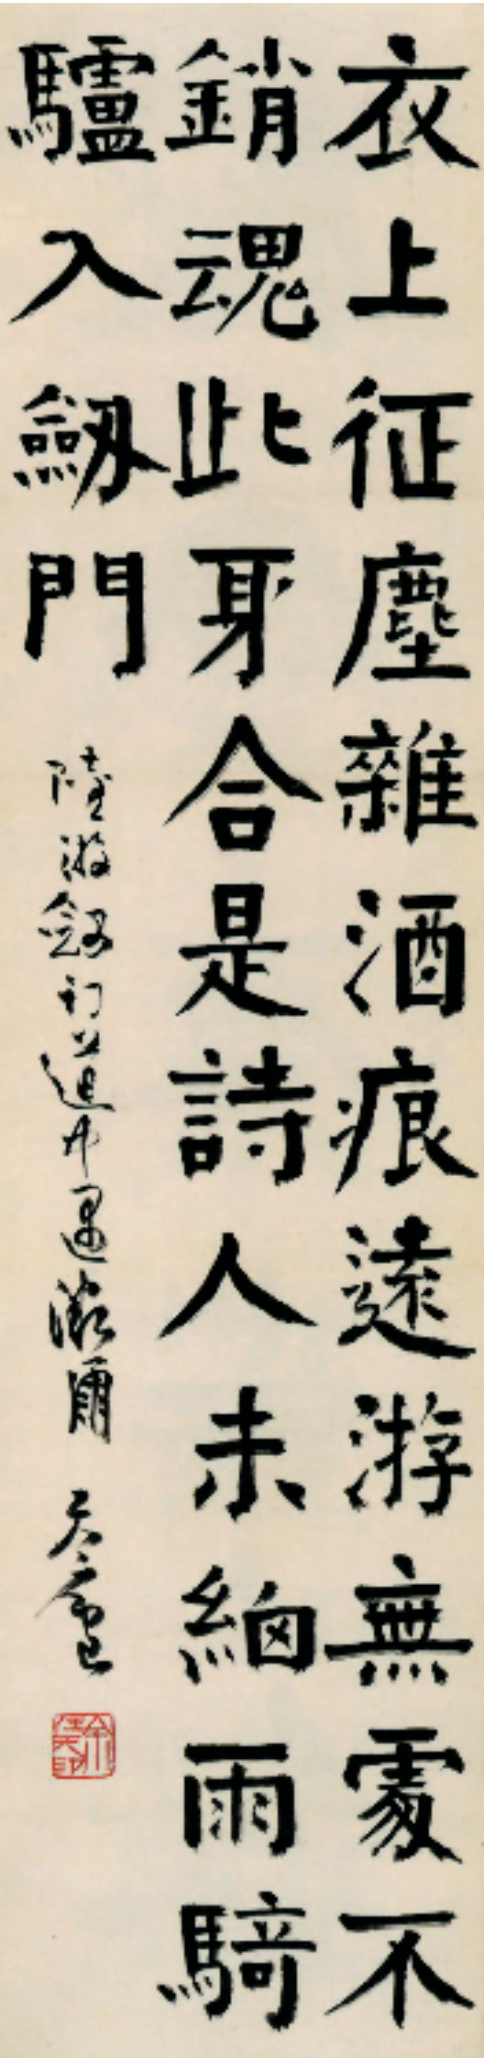 衣上征塵雜酒痕遠游無處不
銷魂此身合是詩人未細雨騎
驢入劒門
陸游劒門道中遇微雨 天廬
余任天印